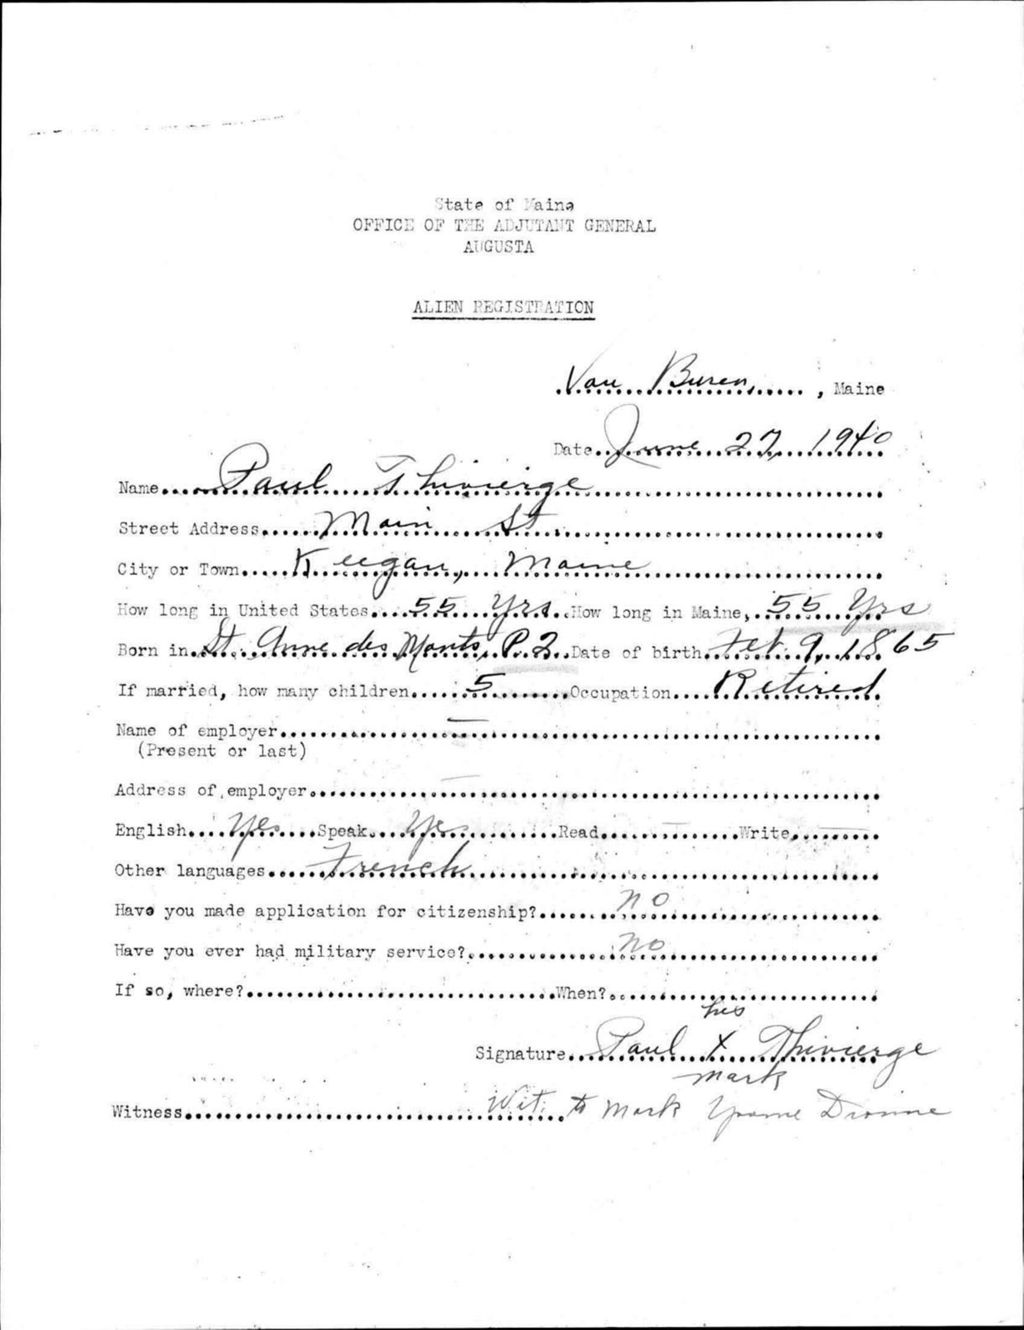 State of Maine
OFFICE OF THE ADJUTANT GENERAL
AUGUSTA
ALIEN REGISTRATION
Van Buren, Maine
Date June 27, 1940
Name Paul Thivierge
Street Address Main St.
City or Town Keegan, Maine
How long in United States 55 Yrs. How long in Maine, 55 Yrs
Born in St. Anne des Monts, P.Q. Date of birth Feb. 9, 1865
If married, how many children 5 Occupation Retired
Name of employer —
(Present or last)
Address of employer —
English Yes Speak Yes Read — Write —
Other languages French
Have you made application for citizenship? no
Have you ever had military service? no
If so, where? When?
his
Signature Paul X Thivierge
mark
Witness Wit. to mark Yvonne Dionne